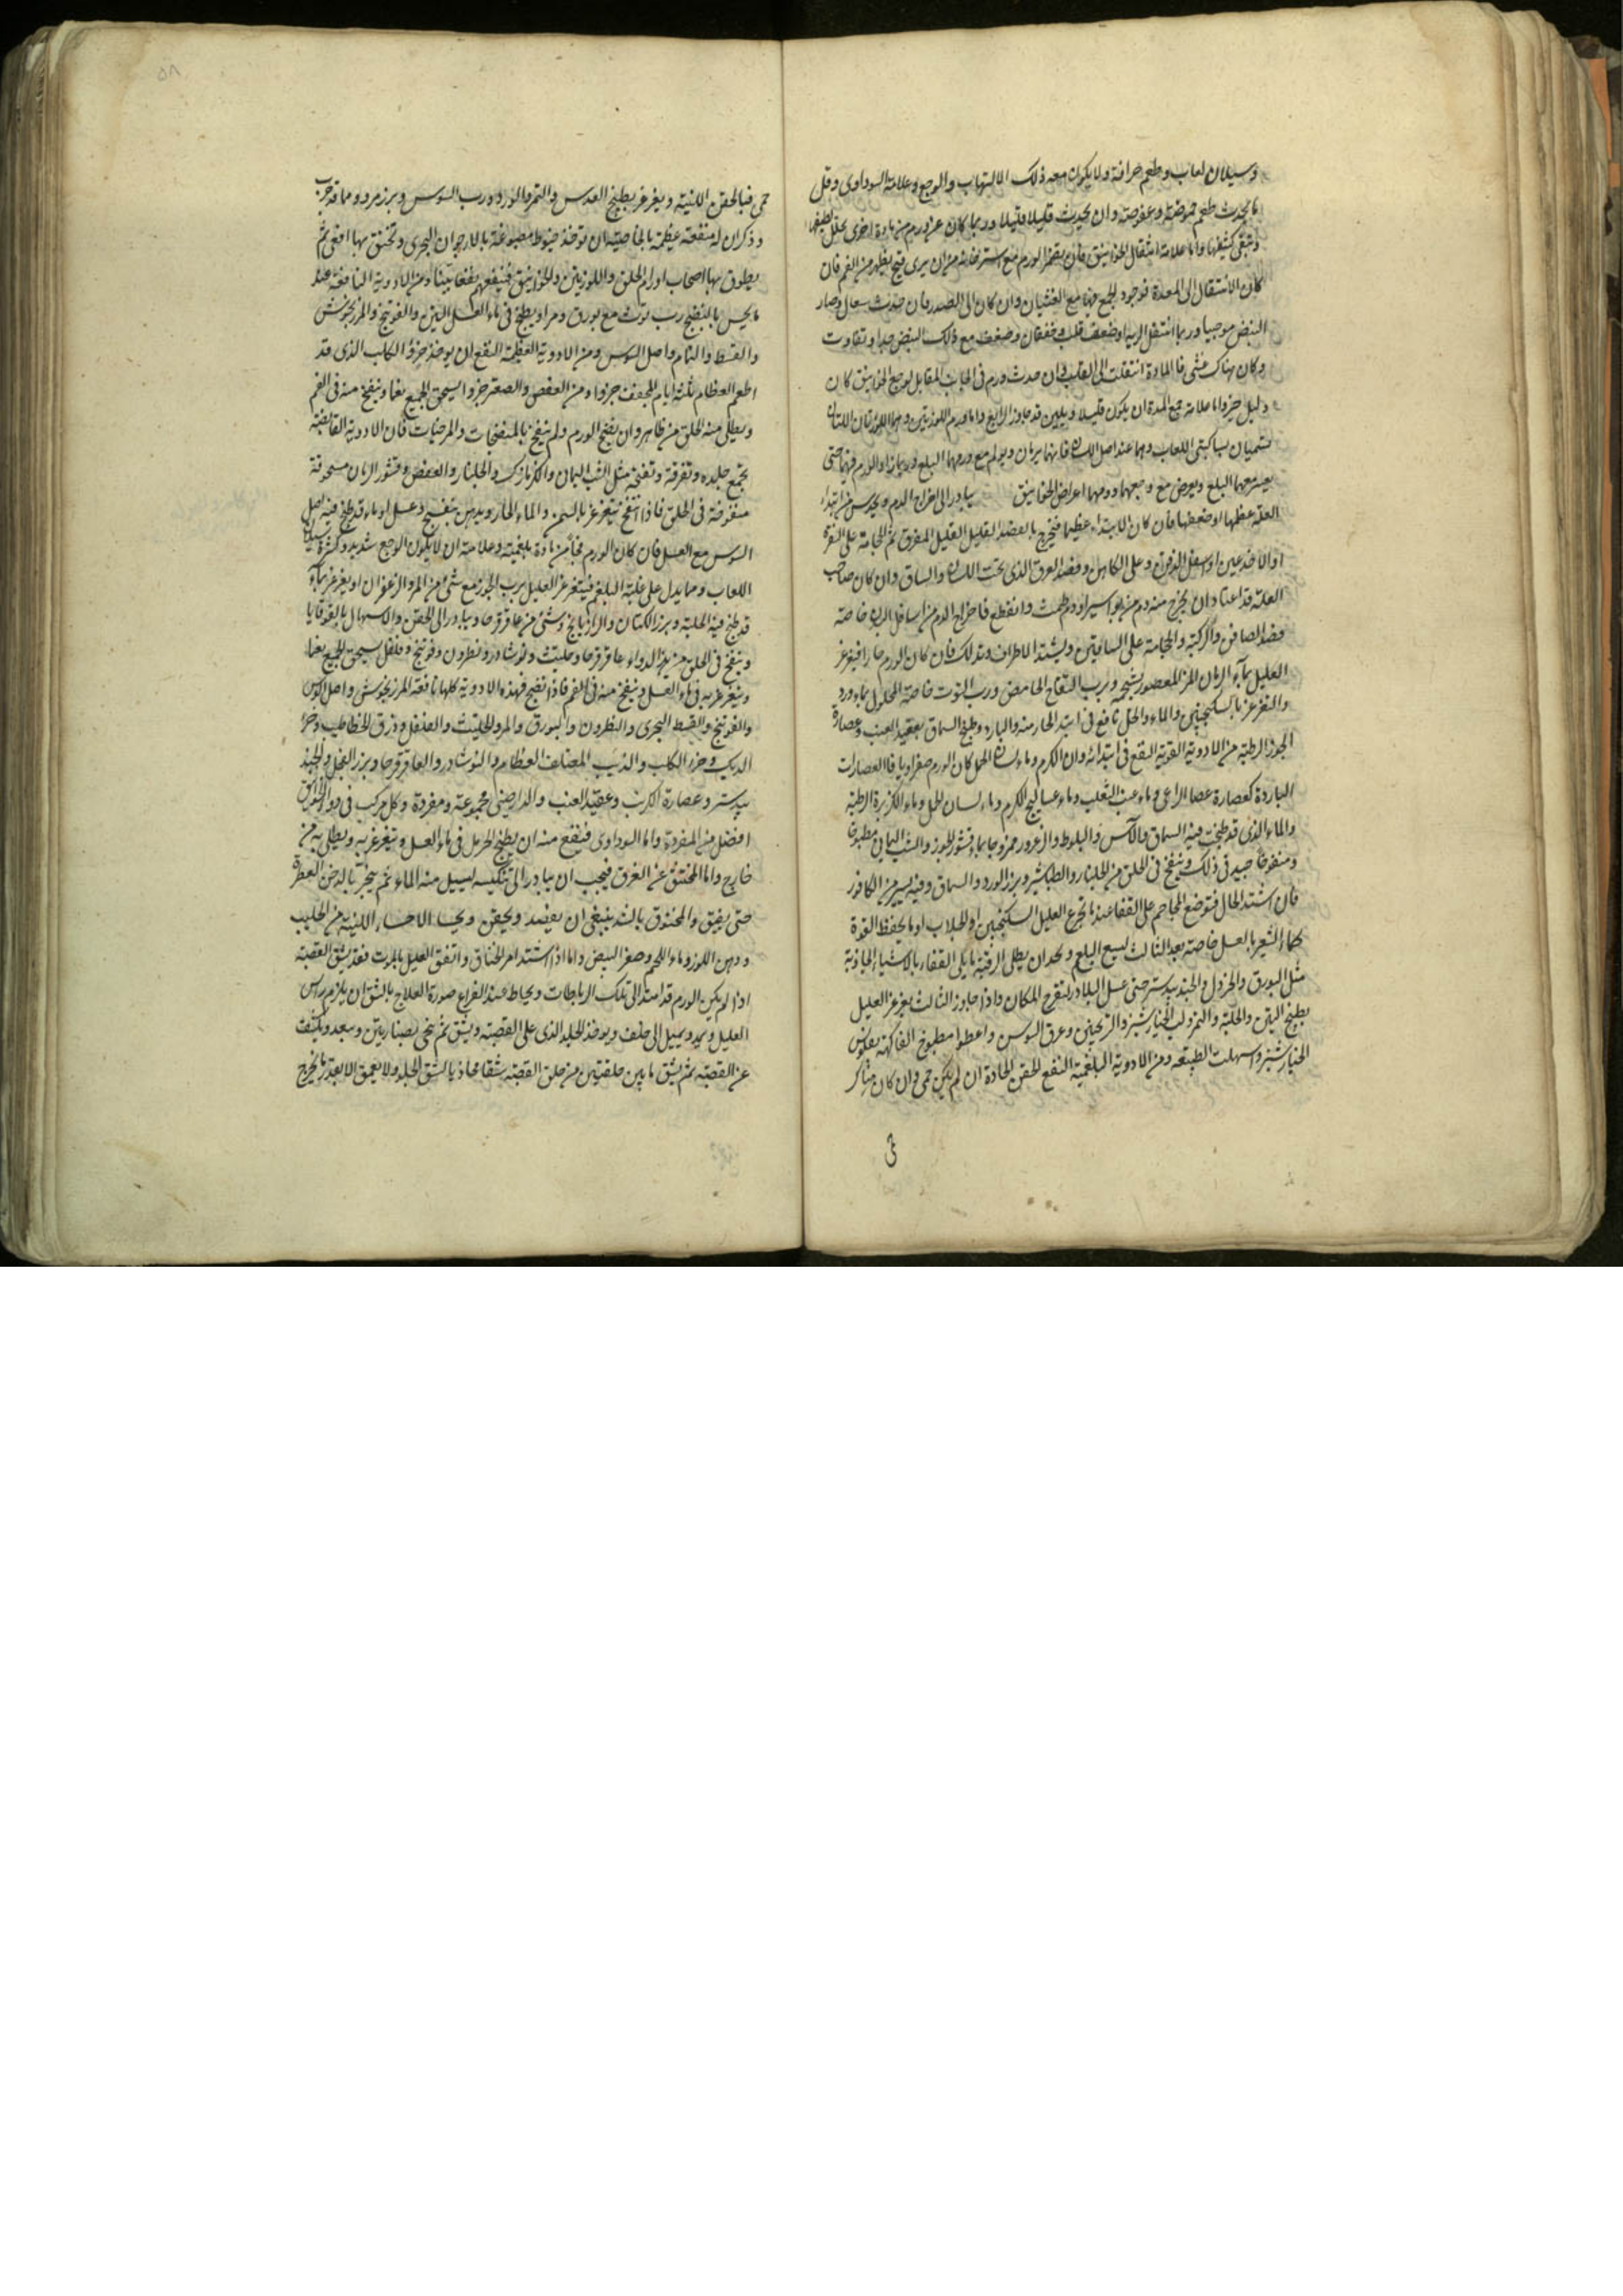 وسيلان لعاب وطعم حرافة ولا يكون معه ذلك الالتهاب والوجع وعلامة السوداوى وقل
ما يحدث طعم حموضة وعفوصة وان يحدث قليلا قليلا وربما كان عن ورم من مادة اخرى تحلل لطيفها
وتبقى كثيفها واما علامة انتقال الخوانيق فان يضمر الورم مع استرخائه من ان يرى قيح يظهر من الفم فان
كان الانتقال الى المعدة فوجود الوجع فيها مع الغثيان وان كان الى الصدر فان حدث سعال وصار
النبض موجيا وربما انتقل الى الرية او ضعف قلب وخفقان وضعف مع ذلك النبض جدا وتفاوت
وكان هناك غشى فالمادة انتقلت الى القلب وان حدث ورم فى الجانب المقابل لوجع الخوانيق كان
دليل خير واما علامة جمع المدة ان يكون قليلا ويلين قد جاوز الرابع واما ورم اللوزتين وهما اللوزتان اللتان
تسميان ساكبتى اللعاب وهما عند اصل اللسان فانهما يرمان ويولم مع ورمهما البلع وربما زاد الورم فيهما حتى
يعسر معهما البلع ويعرض مع وجعهما وورمهما اعراض الخوانيق يبادر الى اخراج الدم ويحدس من ابتداء
العلة عظمها او ضعفها فان كان الابتداء عظيما فيخرج بالفصد القليل القليل المفرق ثم الحجامة على النقرة
او الاخدعين او اسفل الذقن وعلى الكاهل وفصد العرق الذى تحت اللسان والساق وان كان صاحب
العلة قد اعتاد ان يخرج منه دم من بواسير او دم طمث وانقطع فاخراج الدم من اسافل البدن خاصة
فصد الصافن والركبة والحجامة على الساقين ويشتد الاطراف وتدلك فان كان الورم حارا فيغرغر
العليل بماء الرمان المز المعصور بشحمه وبرب التفاح الحامض ورب التوت خاصة المحلول بماء ورد
والتغرغر بالسكنجبين والماء والخل نافع فى ابتداء الحار منه والبارد وطبخ السماق بعقيد العنب وعصارة
الجوز الرطبة من الادوية القوية النفع فى ابتدائه وان الكرم وماء لسان الحمل كان الورم صفراويا فالعصارات
الباردة كعصارة عصا الراعى وماء عنب الثعلب وماء عساليج الكرم وماء لسان الحمل وماء الكزبرة الرطبة
والماء الذى قد طبخ فيه السماق والآس والبلوط والزعرور ممزوجا بماء قشور الجوز والشب اليمانى مطبوخا
ومنفوخا جيد فى ذلك وينفخ فى الحلق من الجلنار والطباشير وبزر الورد والسماق وفيه يسير من الكافور
فان اشتد الحال فتوضع المحاجم على القفا عند ما تجرع العليل السكنجبين او الجلاب او ما يحفظ القوة
كماء الشعير بالعسل خاصة بعد الثالث ليسع البلع وبحد ان يطلى الرقبة ما يلى القفاء بالاشياء الجاذبة
مثل البورق والخردل والجندبيدستر حتى عسل البلادر لتقرح المكان واذا جاوز الثالث يغرغر العليل
بطبخ التين والحلبة والتمر ولب الخيارشنبر والترنجبين وعرق السوس واعطوا مطبوخ الفاكهة بفلوس
الخيارشنبر واسهلت الطبيعة ومن الادوية البلغمية النفع الحقن الحادة ان لم يكن حمى وان كان هناك
حمى
۵۸
حمى فبالحقن اللينة ويغرغر بطبخ العدس والتمر والورد ورب السوس وبزر مرو ومما قد جرب
وذكران له منفعة عظيمة بالخاصية ان توخذ خيوط مصبوغة بالارجوان البحرى وتخنق بها افعى ثم
يطوق بها اصحاب اورام الحلق واللوزتين والخوانيق فينفعهم نفعا بينا ومن الادوية النافعة عند
ما يحس بالنضج رب توث مع بورق ومر او يطبخ فى ماء العسل التين والفوتنج والمرزنجوش
والقسط والنمام واصل السوس ومن الادوية العظيمة النفع ان يوخذ خرؤ الكلب الذى قد
اطعم العظام ثلثة ايام المجفف جزوا ومن العفص والصعتر جزوا يسحق الجميع نعما وينفخ منه فى الفم
ويطلى منه الحلق من ظاهر وان ينفخ الورم ولم ينفخ بالمنضجات والمرخيات فان الادوية القابضة
تجمع جلده وتفرقه وتفتحه مثل الشب اليمان والكزمازك والجلنار والعفص وقشور الرمان مسحوقة
منفوخة فى الحلق فاذا انفتح تغرغر بالسمن والماء الحار وبدهن بنفسج وعسل او ماء قد طبخ فيه اصل
السوس مع العسل فان كان الورم فجا من مادة بلغمية وعلامته ان لا يكون الوجع شديدا وكثرة سيلان
اللعاب ومما يدل على غلبة البلغم فيتغرغر العليل برب الجوز مع شئ من المر والزعفران او يغرغر بماء
قد طبخ فيه الحلبة وبزر الكتان والرازيانج وشئ من عاقرقرحا ويبادر الى الحقن والاسهال بالقوقايا
وينفخ فى الحلق من هذا الدواء عاقرقرحا وحلتيث ونوشادر ونطرون وفوتنج وفلفل يسحق الجميع نعما
ويتغرغر به فى ماء العسل وينفخ منه فى الفم فاذا نضج فهذه الادوية كلها نافعة المرزنجوش واصل السوس
والفوتنج والقسط البحرى والنطرون والبورق والمر والحلتيث والفلفل وذرق الخطاطيب وخرا
الديك وخرء الكلب والذيب المعتلف العظام والنوشادر والعاقرقرحا وبزر الفجل والجند
بيدستر وعصارة الكرنب وعقيد العنب والدارصينى مجموعة ومفردة وكل مركب فى دواء الخوانيق
افضل من المفردة واما السوداوى فينفع منه ان يطبخ الحرمل فى ماء العسل ويتغرغر به ويطلى به من
خارج واما المختنق عن الغرق فيجب ان يبادر الى تنكيسه ليسيل منه الماء ثم يبخر بالدخن العطرة
حتى يفيق والمخنوق بالشد ينبغى ان يفصد ويحقن ويحسا الاحساء اللينة من الحليب
ودهن اللوز وماء اللحم وصفر البيض واما اذا اشتد امر الخناق وانتفق العليل بالموت فقد يشق القصبة
اذا لم يكن الورم قد امتد الى تلك الرباطات ويحاط عند الفراغ صورة العلاج بالشق ان يلزم رأس
العليل ويمد ويميل الى خلف ويوخذ الجلد الذى على القصبة ويشق ثم ينحى بصنارتين ويبعد ويكشف
عن القصبة ثم يشق ما بين حلقتين من حلق القصبة شقا محاذيا لشق الجلد ولا يعمق الا بقدر ما يخرج